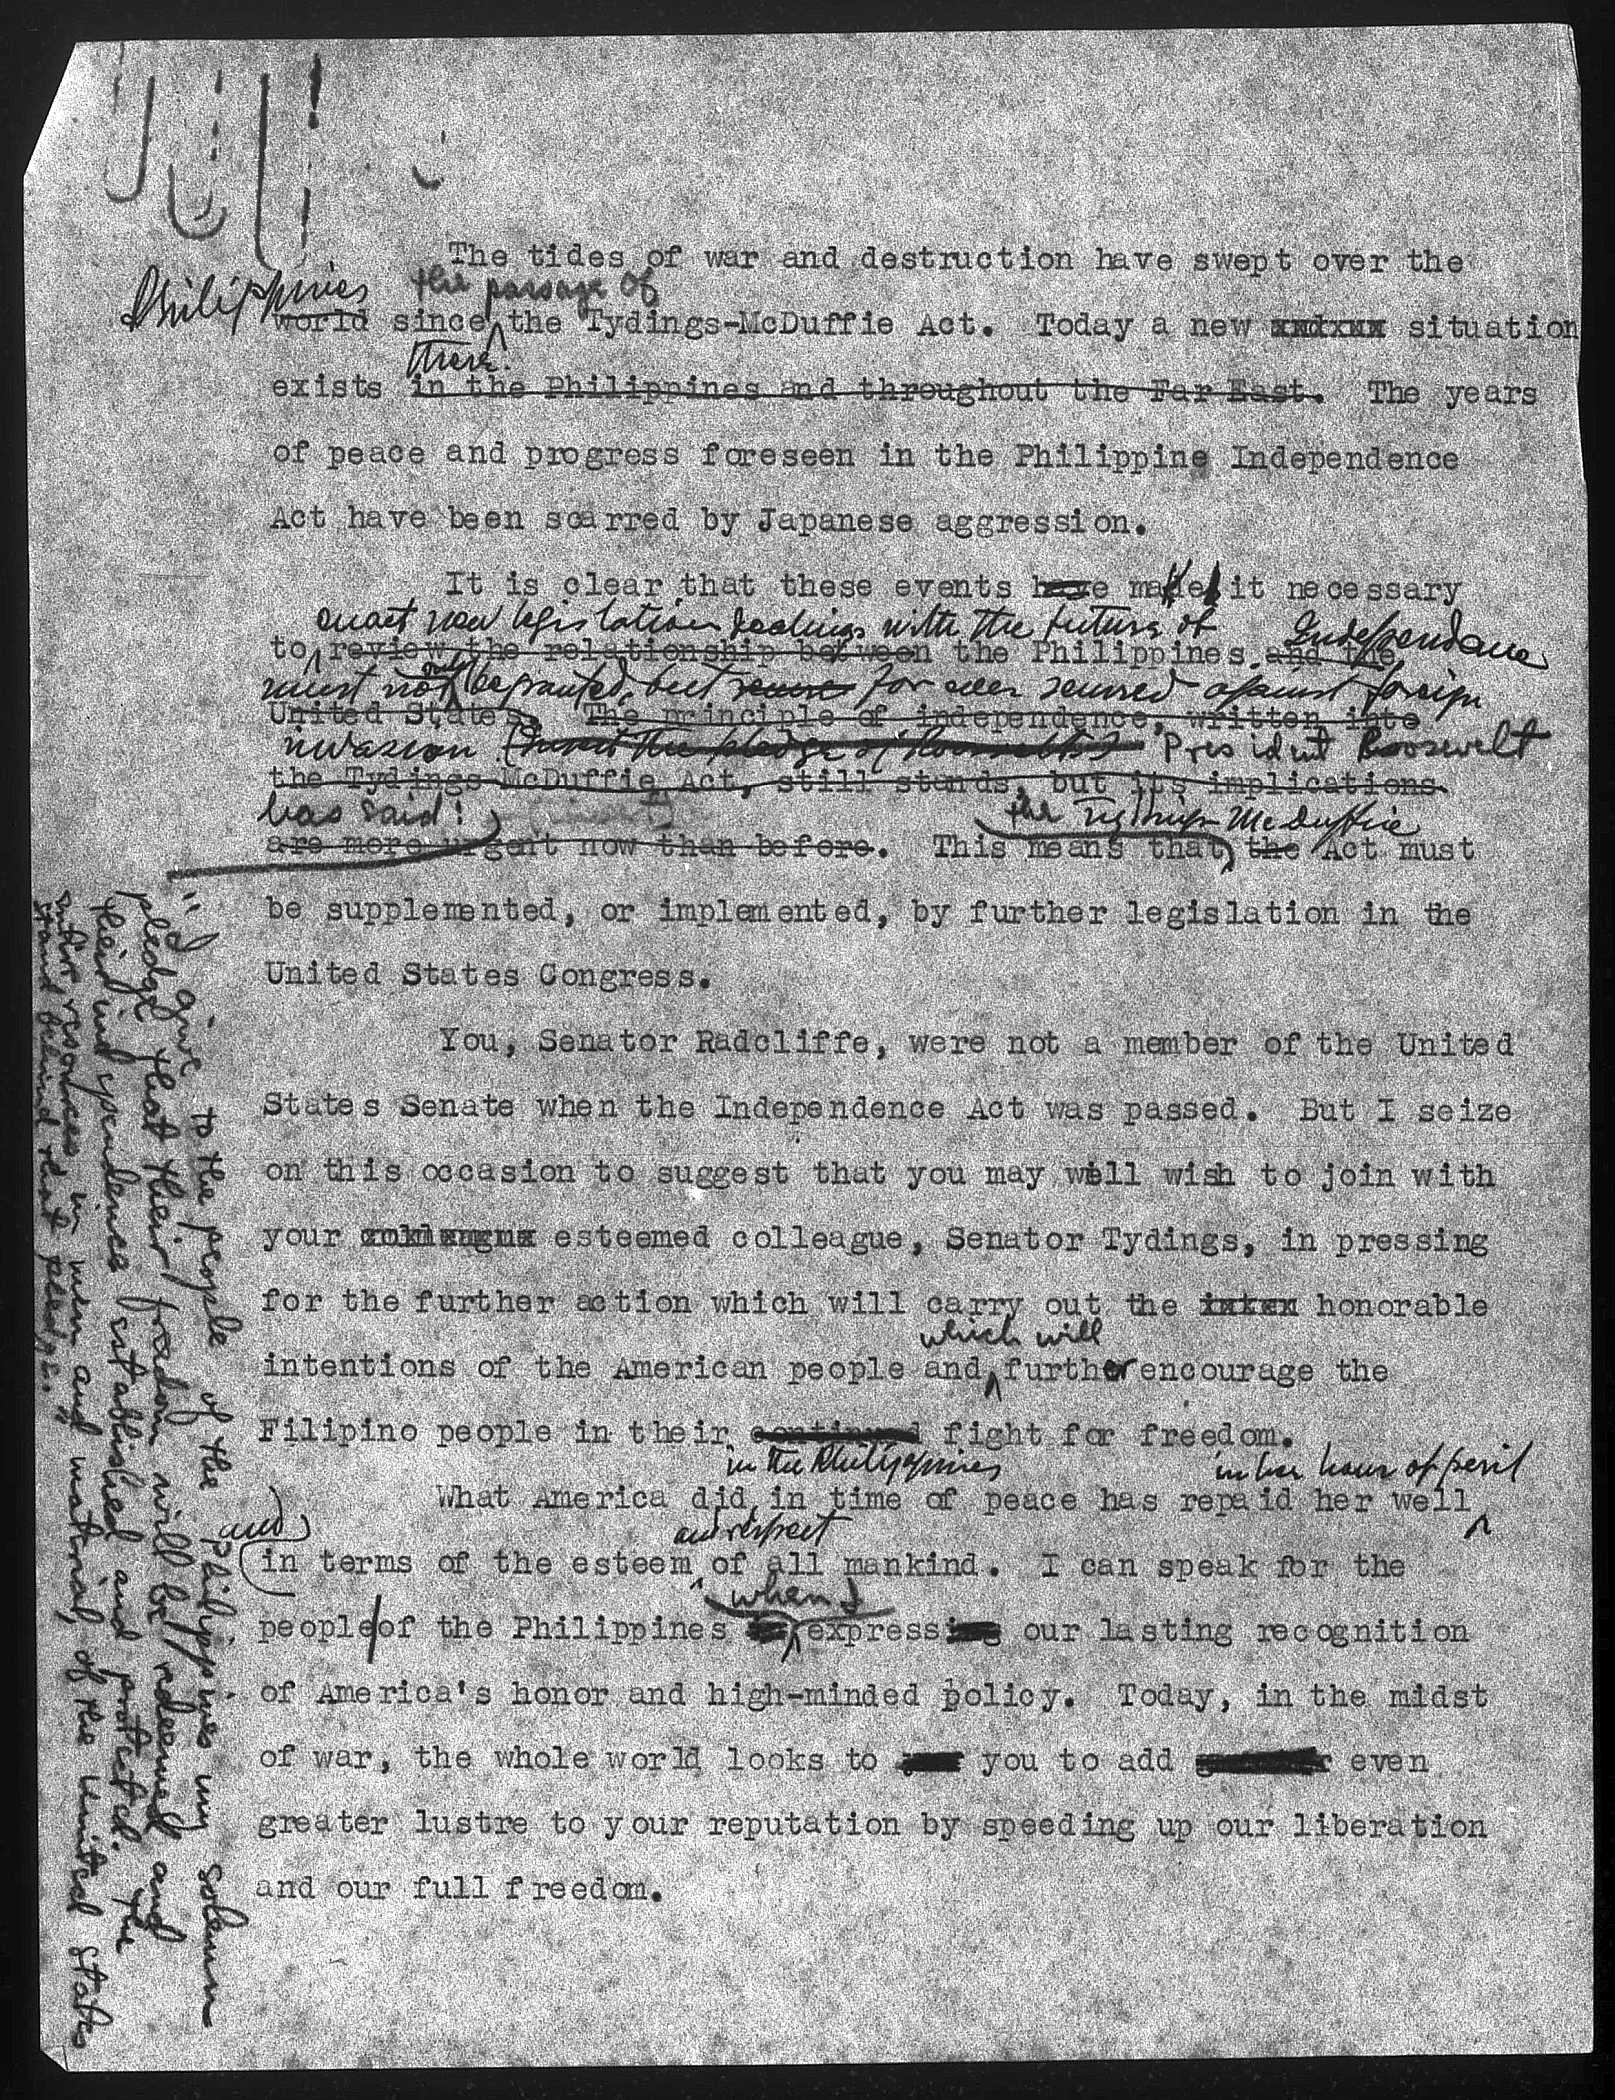 The tides of war and destruction have swept over the
Philippines the passage of
world since the Tydings-McDuffie Act. Today a new situation
there.
exists in the Philippines and throughout the Far East. The years
of peace and progress foreseen in the Philippine Independence
Act have been scarred by Japanese aggression.
It is clear that these events have make it necessary
enact new legislation dealing with the future of Independence
to review the relationship between the Philippines and the
must not only be granted, but secure for ever secured against foreign
United States. The principle of independence, written into
invasion the pledge of President Roosevelt
the Tydings-McDuffie Act, still stands, but its implications
has said: the Tydings-McDuffie
are more urgent now than before. This means that the Act must
be supplemented, or implemented, by further legislation in the
United States Congress.
You, Senator Radcliffe, were not a member of the United
States Senate when the Independence Act was passed. But I seize
on this occasion to suggest that you may well wish to join with
your esteemed colleague, Senator Tydings, in pressing
for the further action which will carry out the honorable
which will
intentions of the American people and further encourage the
Filipino people in their continued fight for freedom.
in the Philippines in her hour of peril
What America did in time of peace has repaid her well
and and respect
in terms of the esteem of all mankind. I can speak for the
when I
people of the Philippines expressing our lasting recognition
of America's honor and high-minded policy. Today, in the midst
of war, the whole world looks to you to add even
greater lustre to your reputation by speeding up our liberation
and our full freedom.
"I give to the people of the Philippines my solemn
pledge that their freedom will be redeemed and
their independence established and protected. The
entire resources, in men and material, of the United States
stand behind that pledge."